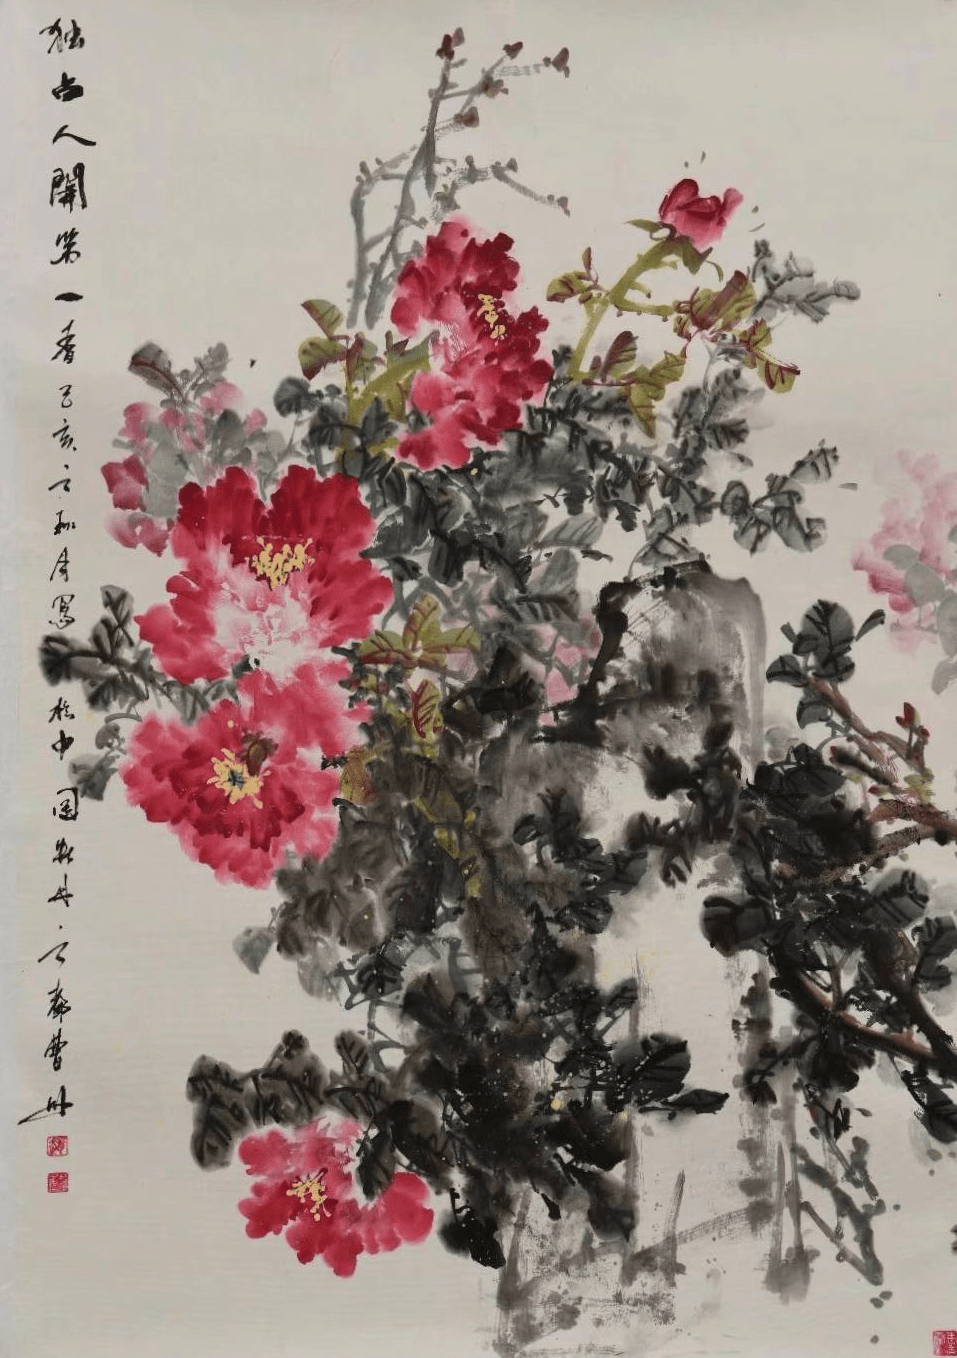 独占人間第一香己亥之秋月寫於中國牡丹之都曹州